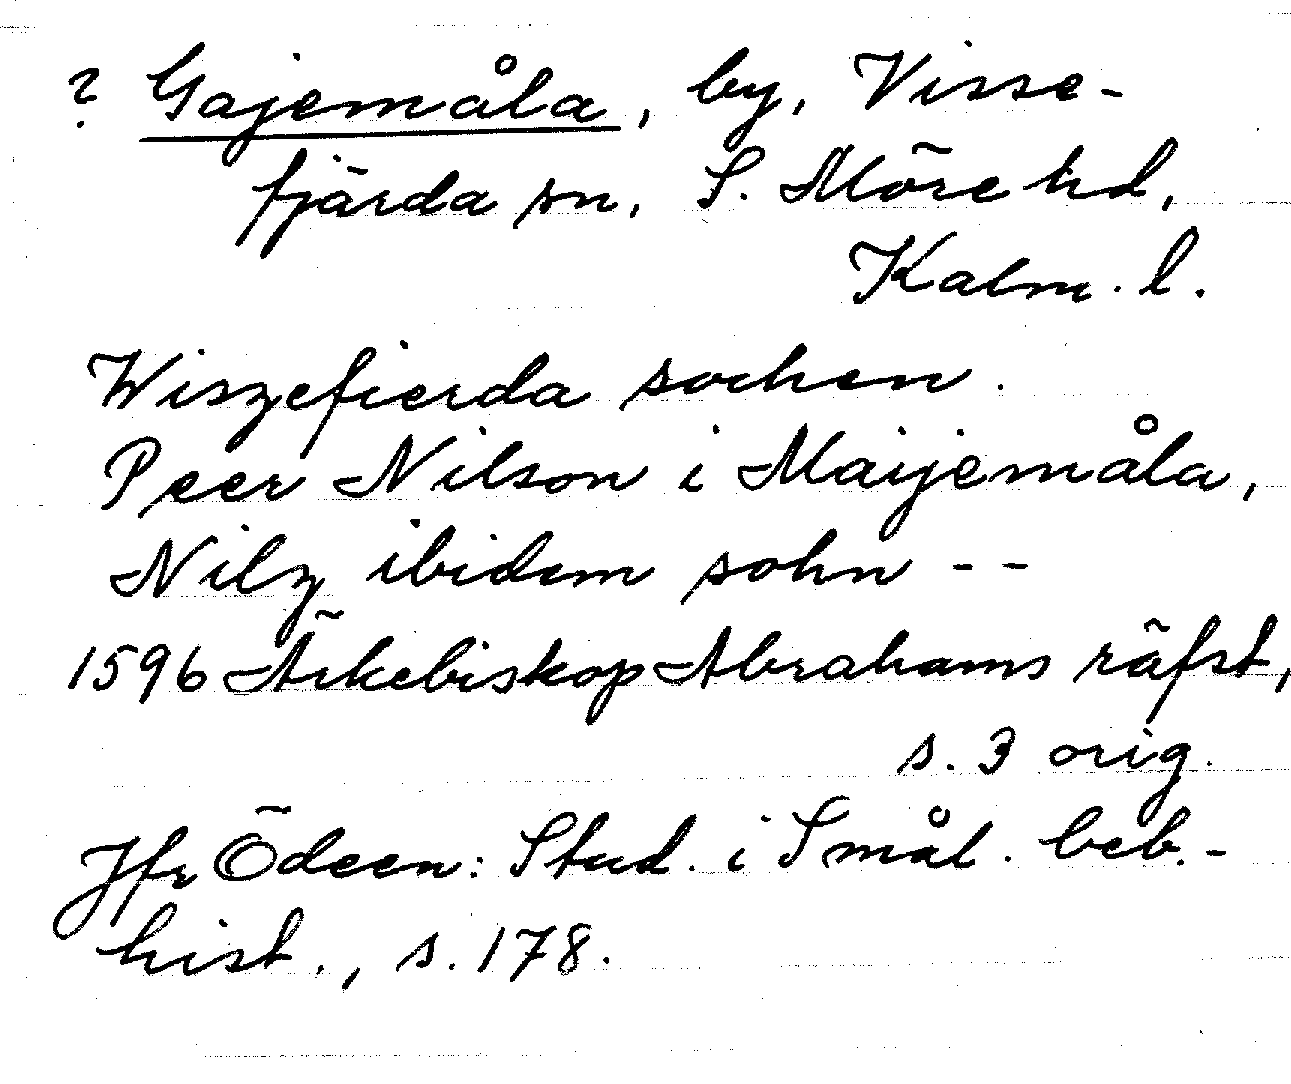 ? Gajemåla, by, Visse-
fjärda sn, S. Möre hd,
Kalm. l.
Wiszefierda sochen.
Peer Nilson i Maijemåla,
Nilz ibidem sohn --
1596 Ärkebiskop Abrahams räfst,
s. 3 orig.
Jfr Ödeen: Stud. i Smål. beb.-
hist., s. 178.